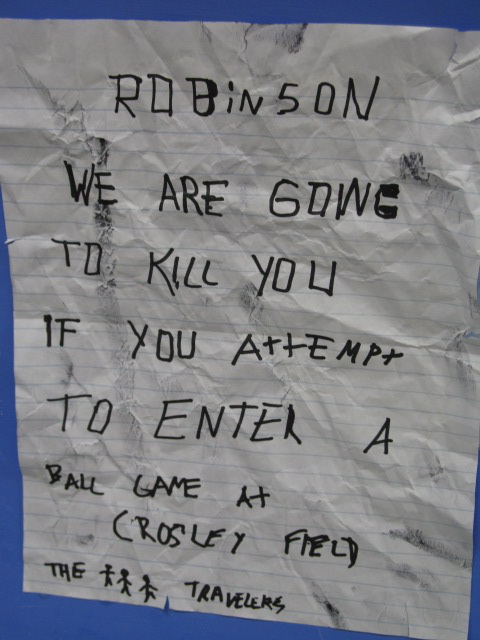 ROBiNSON
WE ARE GOING
TO KILL YOU
IF YOU AttEMPt
TO ENTER A
BALL GAME At
CROSLEY FIELD
THE TRAVELERS